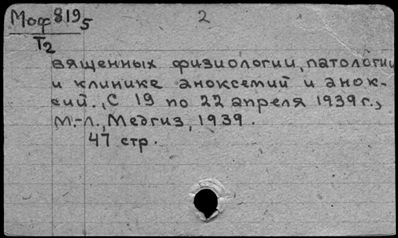 Моф 8195
2
Т2
вященных физиологии, патологии
и клинике аноксемий и анок-
сий., С 19 по 22 апреля 1939 г.,
М.-Л., Медгиз, 1939.
47 стр.